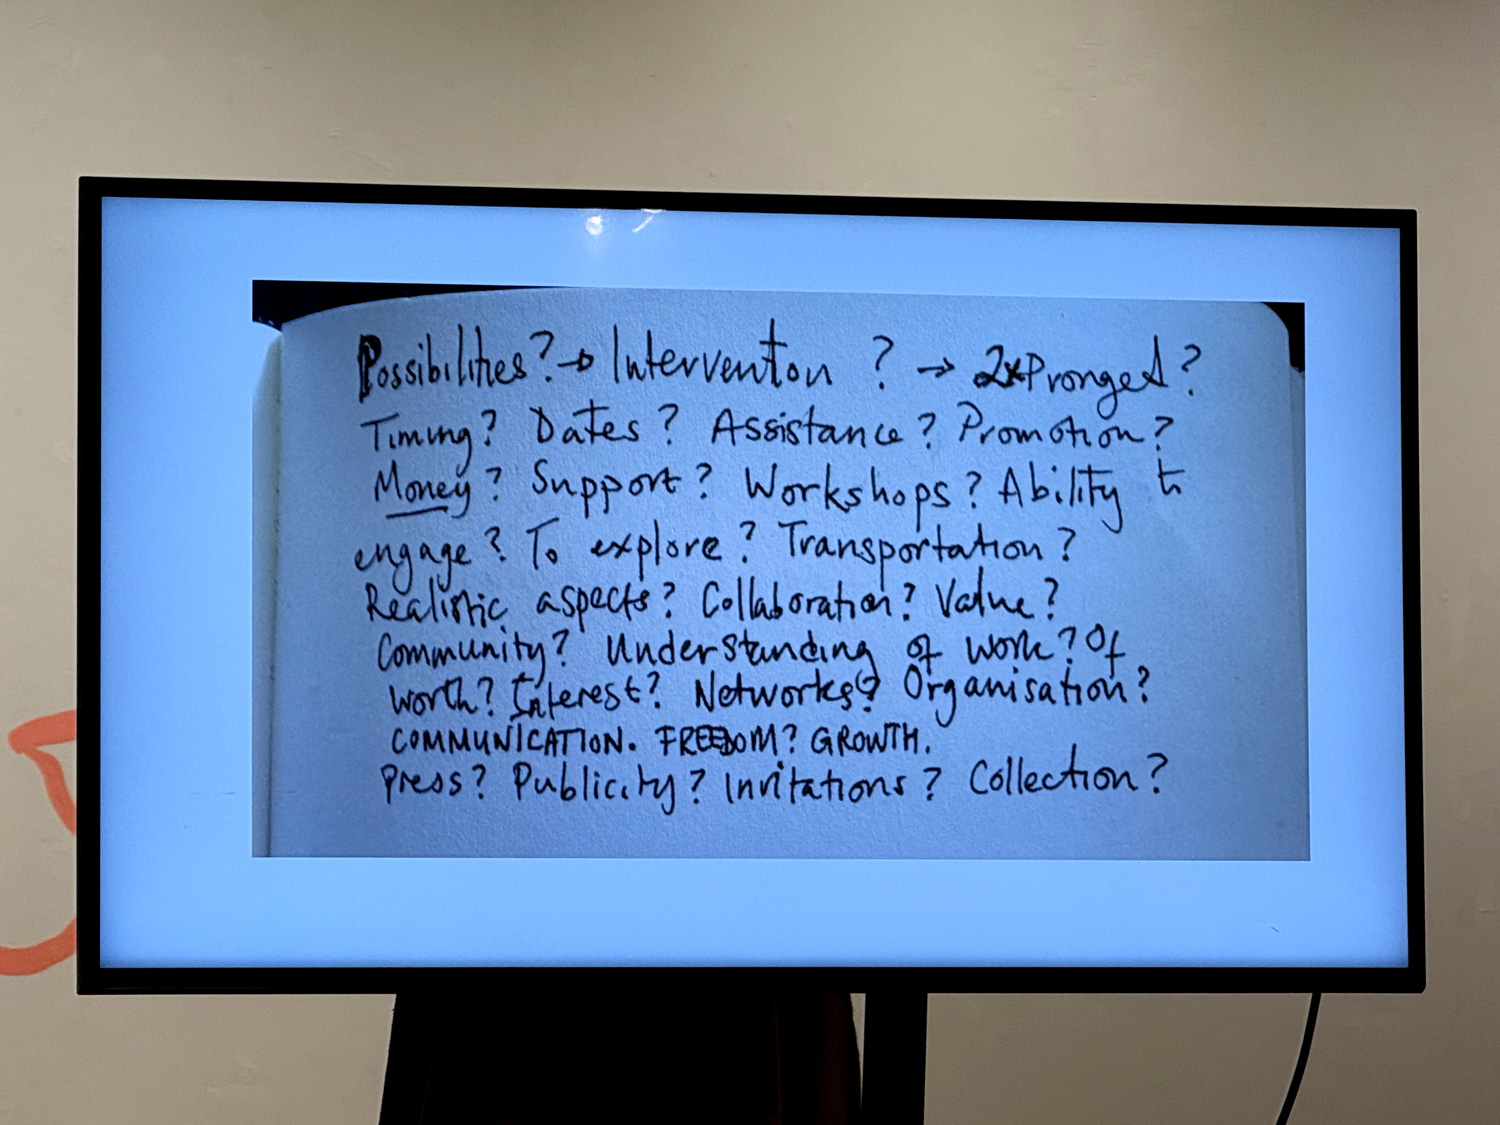 Possibilities? → Intervention ? → 2x Pronged?
Timing? Dates? Assistance? Promotion?
Money? Support? Workshops? Ability to
engage? To explore? Transportation?
Realistic aspects? Collaboration? Value?
Community? Understanding of work? Of
worth? Interest? Networks? Organisation?
COMMUNICATION. FREEDOM? GROWTH.
Press? Publicity? Invitations? Collection?